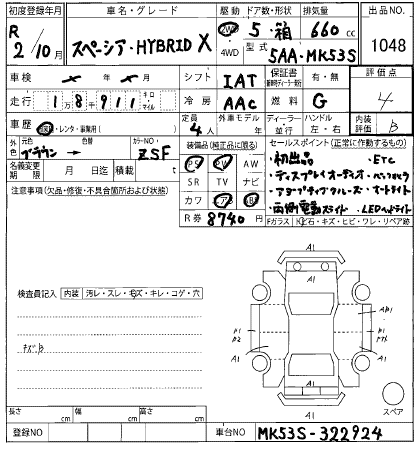 初度登録年月 車名・グレード 駆動 ドア数・形状 排気量 出品NO.
R 2/10月 スペーシア・HYBRID X 2WD 4WD 5・箱 660cc 1048
型式 5AA-MK53S
車検 年 月 シフト IAT 保証書 有・無 評価点
走行 1万8911 キロ マイル 冷房 AAC 燃料 G 4
車歴 自家・レンタ・事業用( ) 定員 4人 外車モデル 年 ディーラー 並行 ハンドル 左・右 内装評価 B
外色 元色 ブラウン→ 色替 カラーNO. ZSF 装備品(純正品に限る) セールスポイント(正常に作動するもの)
名義変更期限 月 日迄 積載 t PS PW AW
SR TV ナビ
カワ エア
R券 8740円
・初出品 ・ETC
・ディスプレイオーディオ
・アダプティブクルーズ ・オートライト
・両側電動スライド ・LEDヘッドライト
注意事項(欠品・修復・不具合箇所および状態)
Fガラス 飛石・キズ・ヒビ・ワレ・リペア跡
A1
検査員記入 内装 汚レ・スレ・キズ・キレ・コゲ・穴
A1
P1 P2
P1
A1 A1
キズB
A1
スペア
長さ cm 幅 cm 高さ cm
登録NO 車台NO MK53S-322924